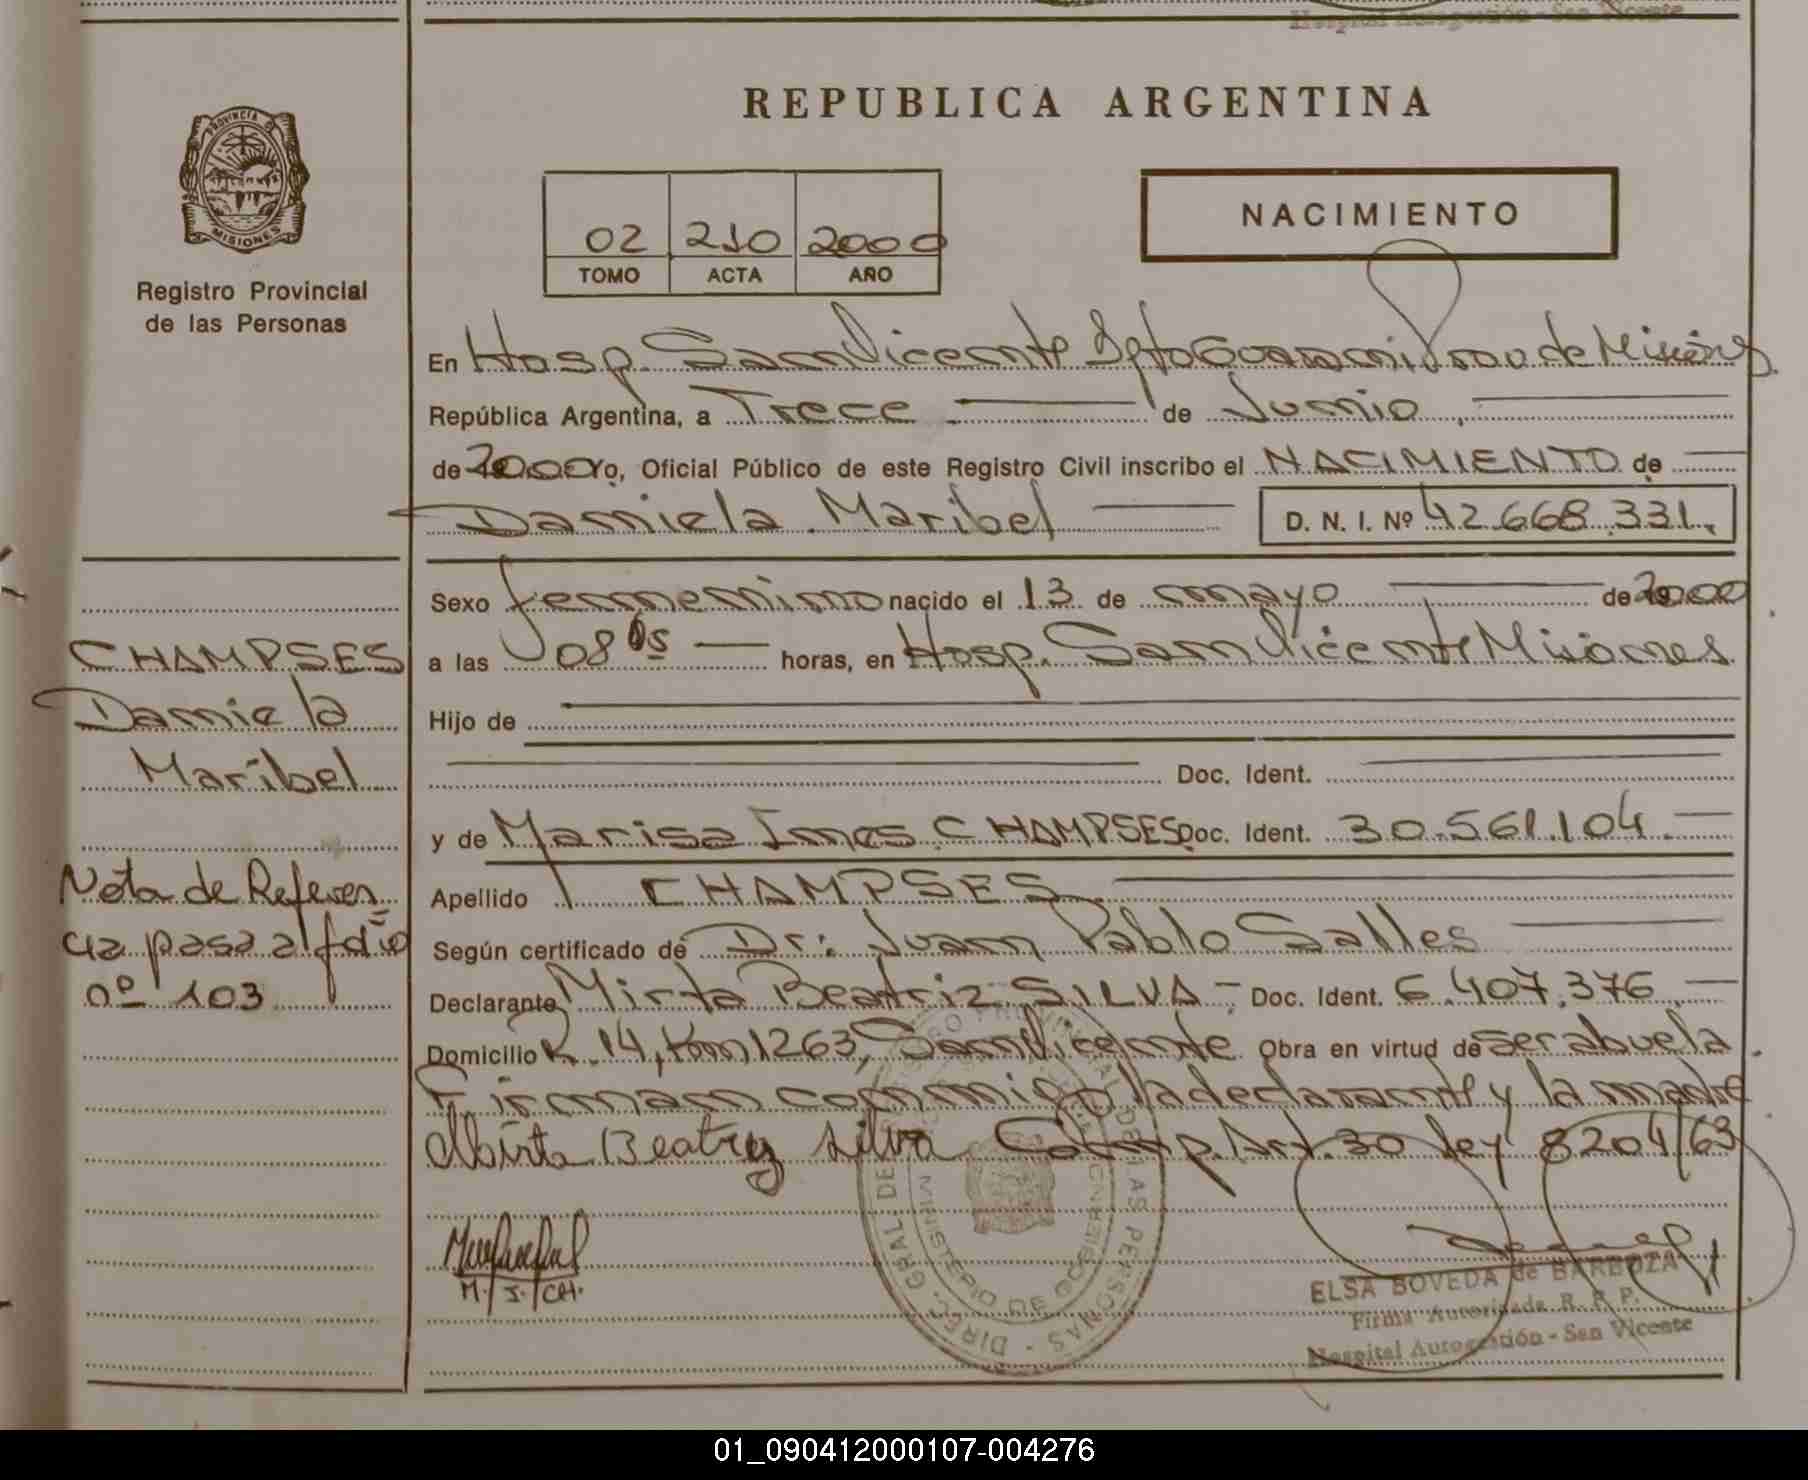 Hospital Autogestión - San Vicente
REPUBLICA ARGENTINA
PROVINCIA DE
MISIONES
Registro Provincial
de las Personas
02 210 2000
TOMO ACTA AÑO
NACIMIENTO
En Hosp. San Vicente Dpto Guarani, Prov. de Misiones
República Argentina, a Trece de Junio
de 2000 Yo, Oficial Público de este Registro Civil inscribo el NACIMIENTO de
Daniela Maribel D. N. I. Nº 42.668.331.
Sexo femenino nacido el 13 de mayo de 2000
a las 08 hs horas, en Hosp. San Vicente Misiones.
Hijo de
Doc. Ident.
y de Marisa Ines CHAMPSES Doc. Ident. 30.561.104.
Apellido CHAMPSES
Según certificado de Dr: Juan Pablo Salles
Declarante Mirta Beatriz SILVA - Doc. Ident. 6.407.376
Domicilio R. 14, Km 1263, San Vicente. Obra en virtud de ser abuela
Firman conmigo la declarante y la madre
Mirta Beatriz Silva Comp. Art. 30 ley 8204/63
M. I. CH.
CHAMPSES
Daniela
Maribel
Nota de Referen
cia pasa al folio
nº 103
ELSA BOVEDA de BARBOZA
Firma Autorizada R. P. P.
Hospital Autogestión - San Vicente
01_090412000107-004276